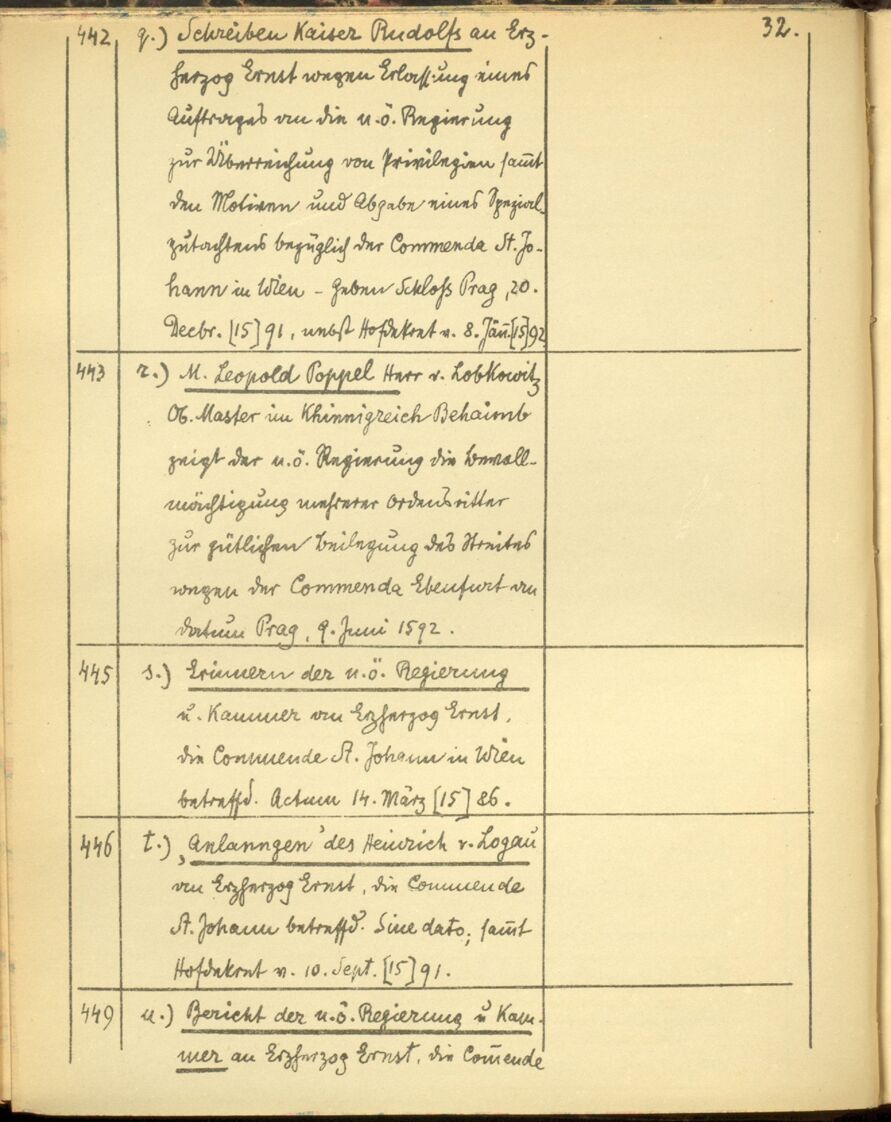 32.
442 q.) Schreiben Kaiser Rudolfs an Erz-
herzog Ernst wegen Erlassung eines
Auftrages an die n.ö. Regierung
zur Überreichung von Privilegien sam̅t
den Motiven und Abgabe eines Spezial-
gutachtens bezüglich der Commenda St. Jo-
hann in Wien – geben Schloß Prag, 20.
Decbr. [15]91, nebst Hofdekret v. 8. Jän̅.[15]92
443 r.) M. Leopold Poppel Herr v. Lobkowitz
Ob. Master im Khinnigreich Behaimb
zeigt der n.ö. Regierung die Bevoll-
mächtigung mehrerer Ordensritter
zur gütlichen Beilegung des Streites
wegen der Commenda Ebenfurt an
datum Prag, 9. Juni 1592.
445 s.) Erinnern der n.ö. Regierung
u. Kammer an Erzherzog Ernst,
die Commende St. Johann in Wien
betreffd. Actum 14. März [15]86.
446 t.) ‚Anlanngen' des Heinrich v. Logau
an Erzherzog Ernst, die Commende
St. Johann betreffd. Sine dato; sam̅t
Hofdekret v. 10. Sept. [15]91.
449 u.) Bericht der n.ö. Regierung u Kam-
mer an Erzherzog Ernst, die Com̅ende